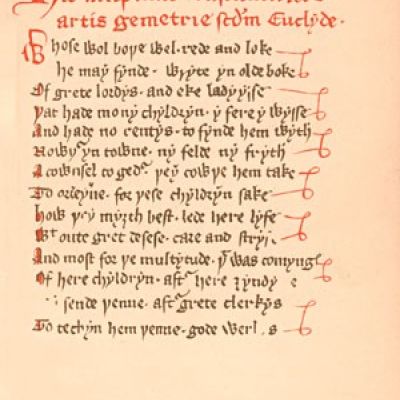 Hic incipiunt
artis gemetrie scdm Euclyde.
Whose wol boþe wel rede and loke
he may fynde wryte yn olde boke
Of grete lordys and eke ladyysse
þat hade mony chyldryn y fere y wysse
And hade no rentys to fynde hem wyth
Nowþr yn towne ny felde ny fryth
A cownsel to gedr þey cowþe hem take
To ordeyne for þese chyldryn sake
How þey myth best lede here lyfe
Wt oute gret desese care and stryf
And most for þe multytude þt was comyng
Of here chyldryn aftr here zyndy
sende þenne aftr grete clerkys
To techyn hem þenne gode wer s